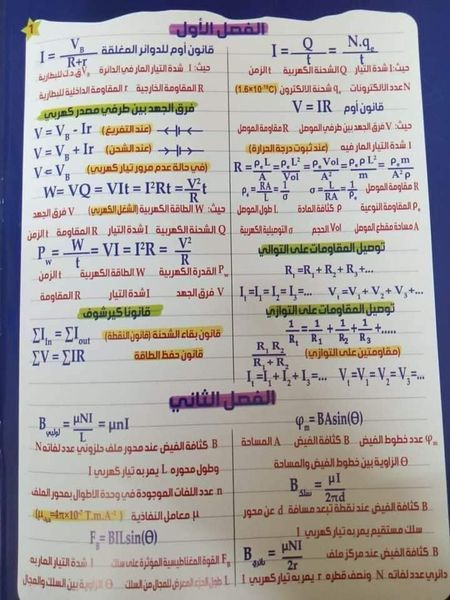 1
الفصل الأول
I = Q/t = N.qₑ/t
حيث: I شدة التيار Q الشحنة الكهربية t الزمن
N عدد الالكترونات qₑ شحنة الالكترون (1.6×10⁻¹⁹C)
قانون أوم V = IR
حيث: V فرق الجهد بين طرفي الموصل R مقاومة الموصل
I شدة التيار المار فيه (عند ثبوت درجة الحرارة)
R = ρₑL/A = ρₑL²/Vol = ρₑVol/A² = ρₑρL²/m = ρₑm/A²ρ
ρₑ = RA/L = 1/σ σ = L/RA = 1/ρₑ
R مقاومة الموصل
ρₑ المقاومة النوعية ρ كثافة المادة L طول الموصل
A مساحة مقطع الموصل Vol الحجم σ التوصيلية الكهربية
توصيل المقاومات على التوالي
Rₜ=R₁+R₂+R₃+...
Iₜ=I₁=I₂=I₃=... Vₜ=V₁+V₂+V₃+...
توصيل المقاومات على التوازي
1/Rₜ = 1/R₁ + 1/R₂ + 1/R₃ +.....
R₁R₂/R₁+R₂ (مقاومتين على التوازي)
Iₜ=I₁+I₂+I₃+... Vₜ=V₁=V₂=V₃=...
قانون أوم للدوائر المغلقة I = V_B/R+r
حيث: I شدة التيار المار في الدائرة V_B ق.د.ك للبطارية
R المقاومة الخارجية r المقاومة الداخلية للبطارية
فرق الجهد بين طرفي مصدر كهربي
V = V_B - Ir (عند التفريغ)
V = V_B + Ir (عند الشحن)
V = V_B (في حالة عدم مرور تيار كهربي)
W= VQ = VIt = I²Rt = V²/R t
حيث: W الطاقة الكهربية (الشغل الكهربي) V فرق الجهد
Q الشحنة الكهربية I شدة التيار R المقاومة t الزمن
P_w = W/t = VI = I²R = V²/R
P_w القدرة الكهربية W الطاقة الكهربية t الزمن
V فرق الجهد I شدة التيار R المقاومة
قانونا كيرشوف
∑I_in = ∑I_out قانون بقاء الشحنة (قانون النقطة)
∑V = ∑IR قانون حفظ الطاقة
الفصل الثاني
φₘ = BAsin(Θ)
φₘ عدد خطوط الفيض B كثافة الفيض A المساحة
Θ الزاوية بين خطوط الفيض والمساحة
B سلك = μI/2πd
B كثافة الفيض عند نقطة تبعد مسافة d عن محور
سلك مستقيم يمر به تيار كهربي I
B دائري = μNI/2r
B كثافة الفيض عند مركز ملف
دائري عدد لفاته N ونصف قطره r يمر به تيار كهربي I
B لولبي = μNI/L = μnI
B كثافة الفيض عند محور ملف حلزوني عدد لفاته N
وطول محوره L يمر به تيار كهربي I
n عدد اللفات الموجودة في وحدة الاطوال بمحور الملف
μ معامل النفاذية (=4π×10⁻⁷ T.m.A⁻¹)
F_B= BILsin(Θ)
F_B القوة المغناطيسية المؤثرة على سلك I شدة التيار المار به
L طول الجزء المعرض للمجال من السلك Θ الزاوية بين السلك والمجال